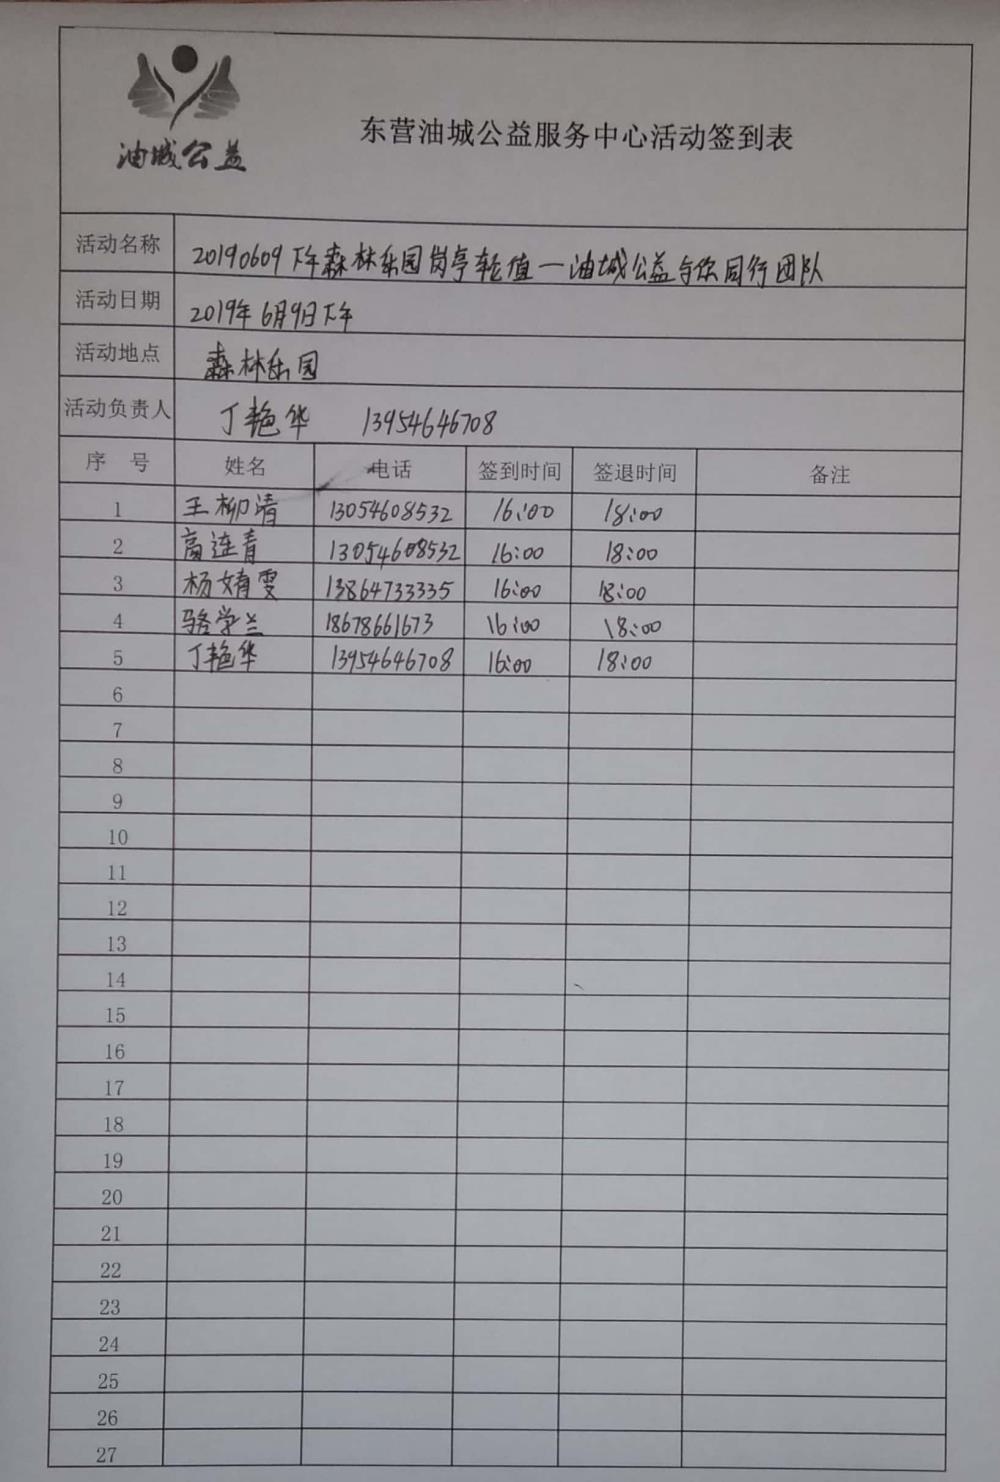 油城公益
东营油城公益服务中心活动签到表
活动名称 20190609下午森林乐园岗亭轮值—油城公益与你同行团队
活动日期 2019年6月9日下午
活动地点 森林乐园
活动负责人 丁艳华 13954646708
序号 姓名 电话 签到时间 签退时间 备注
1 王柳清 13054608532 16:00 18:00
2 高连青 13054608532 16:00 18:00
3 杨婧雯 13864733335 16:00 18:00
4 骆学兰 18678661673 16:00 18:00
5 丁艳华 13954646708 16:00 18:00
6
7
8
9
10
11
12
13
14
15
16
17
18
19
20
21
22
23
24
25
26
27